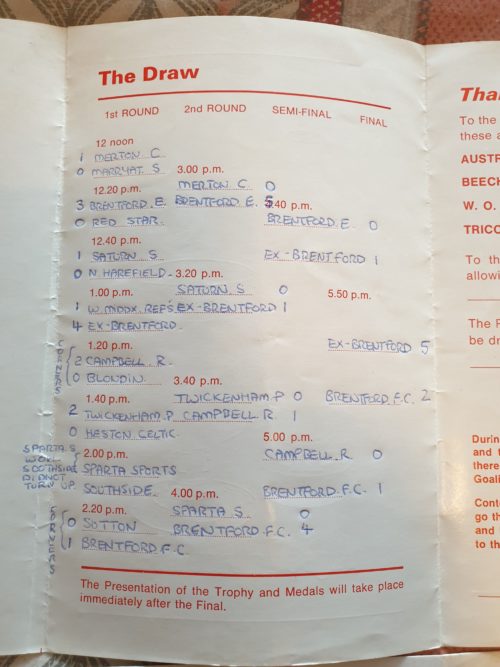 The Draw
1st ROUND 2nd ROUND SEMI-FINAL FINAL
12 noon
1 MERTON C
0 MARRYAT S 3.00 p.m.
12.20 p.m. MERTON C 0
3 BRENTFORD E. BRENTFORD E. 5 5.40 p.m.
0 RED STAR BRENTFORD E. 0
12.40 p.m.
1 SATURN S EX-BRENTFORD 1
0 N HAREFIELD 3.20 p.m.
1.00 p.m. SATURN S 0 5.50 p.m.
1 W. MIDDX. REP'S EX-BRENTFORD 1
4 EX-BRENTFORD
1.20 p.m. EX-BRENTFORD 5
CORNERS
2 CAMPBELL R.
0 BLONDIN 3.40 p.m.
1.40 p.m. TWICKENHAM P 0 BRENTFORD F.C. 2
2 TWICKENHAM P CAMPBELL R 1
0 HESTON CELTIC 5.00 p.m.
2.00 p.m. CAMPBELL R 0
SPARTA S
WON
SOUTHSIDE
DIDNOT
TURN UP
SPARTA SPORTS
SOUTHSIDE 4.00 p.m. BRENTFORD F.C. 1
2.20 p.m. SPARTA S 0
0 SUTTON BRENTFORD F.C. 4
1 BRENTFORD F.C
The Presentation of the Trophy and Medals will take place
immediately after the Final.
Tha
To the
these a
AUSTR
BEECH
W. O.
TRICO
To th
allowi
The F
be dr
Durin
and t
there
Goali
Conte
go th
and
to th